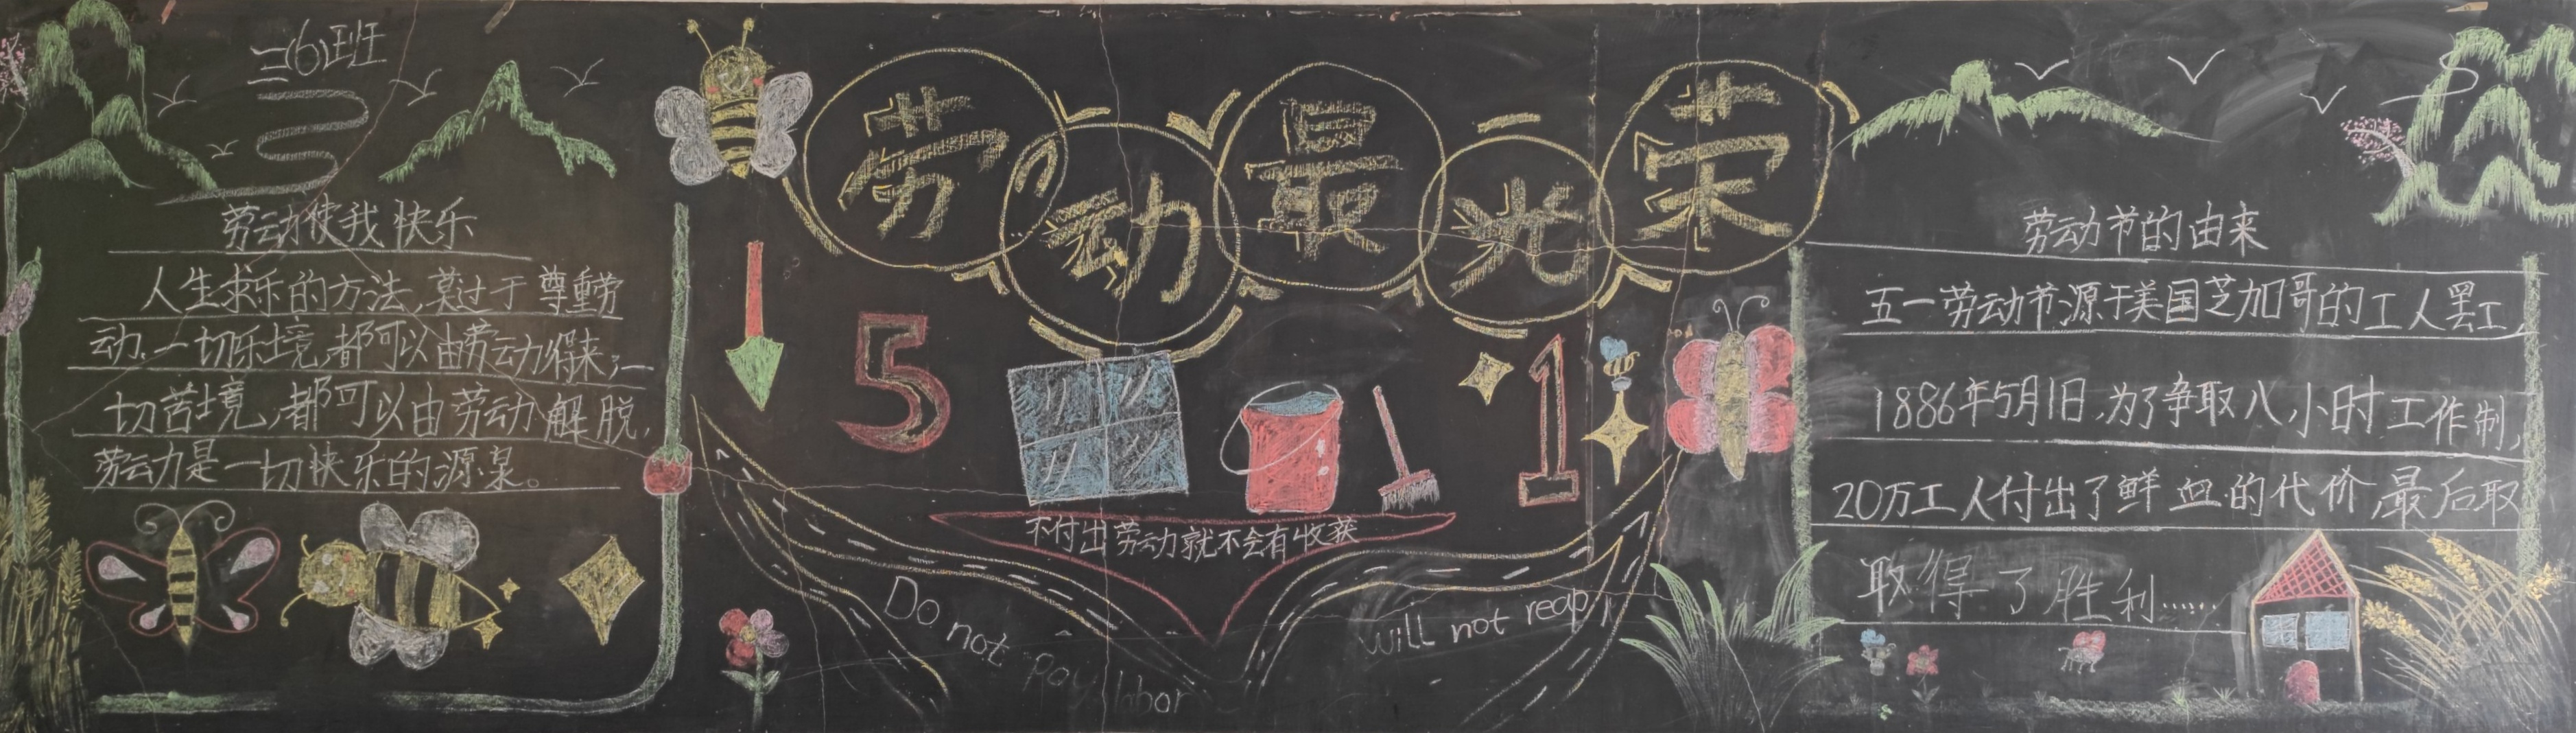 二(6)班
劳动使我快乐
人生求乐的方法,莫过于尊重劳
动,一切乐境,都可以由劳动得来,一
切苦境,都可以由劳动解脱,
劳动是一切快乐的源泉。
劳动最光荣
5 1
不付出劳动就不会有收获
Do not pay labor
will not reap
劳动节的由来
五一劳动节源于美国芝加哥的工人罢工,
1886年5月1日,为了争取八小时工作制,
20万工人付出了鲜血的代价,最后取
取得了胜利......